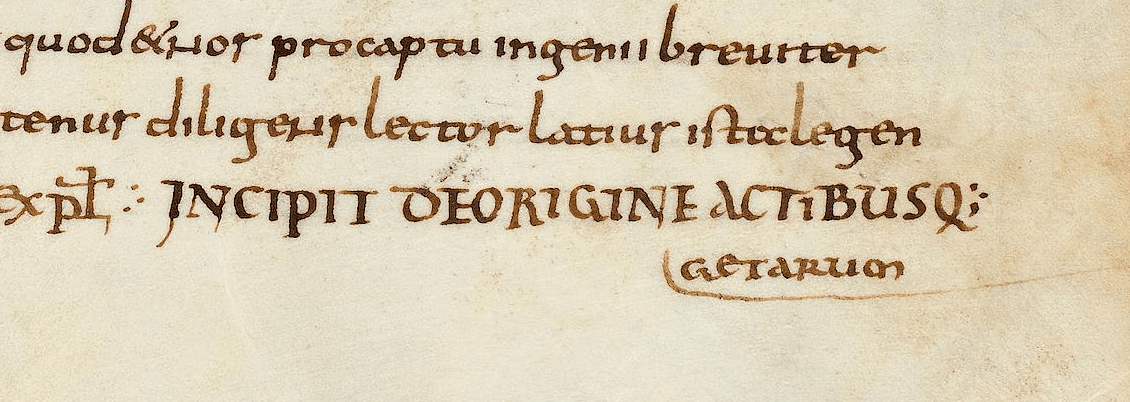 quod & nos procaptu ingenii breuiter
tenus diligens lector latius ista legen
expƚ ∴ INCIPIT DEORIGINE ACTIBUSQ;
GETARUM